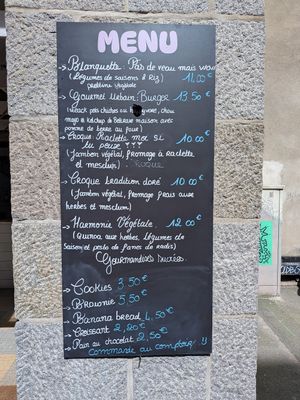 MENU
→ Blanquette : Pas de veau mais waw
(Légumes de saisons & Riz) 14.00€
protéine végétale
→ Gourmet Urbain Burger 13.50€
(steack pois chiches au , choux
mayo & ketchup de Betterave maison avec
pomme de terre au four)
→ Croque Raclette moi si
tu peux ??? 10.00€
(Jambon végétal, fromage à raclette
et mesclun)
→ Croque tradition doré 10.00€
(Jambon végétal, Fromage frais aux
herbes et mesclun)
→ Harmonie Végétale. 12.00€
(Quinoa aux herbes, légumes de
saison et pesto de fanes de radis)
Gourmandises sucrées
→ Cookies 3.50€
→ Brownie 5.50€
→ Banana bread 4.50€
→ Croissant 2.20€
→ Pain au chocolat 2.50€
commande au comptoir !!